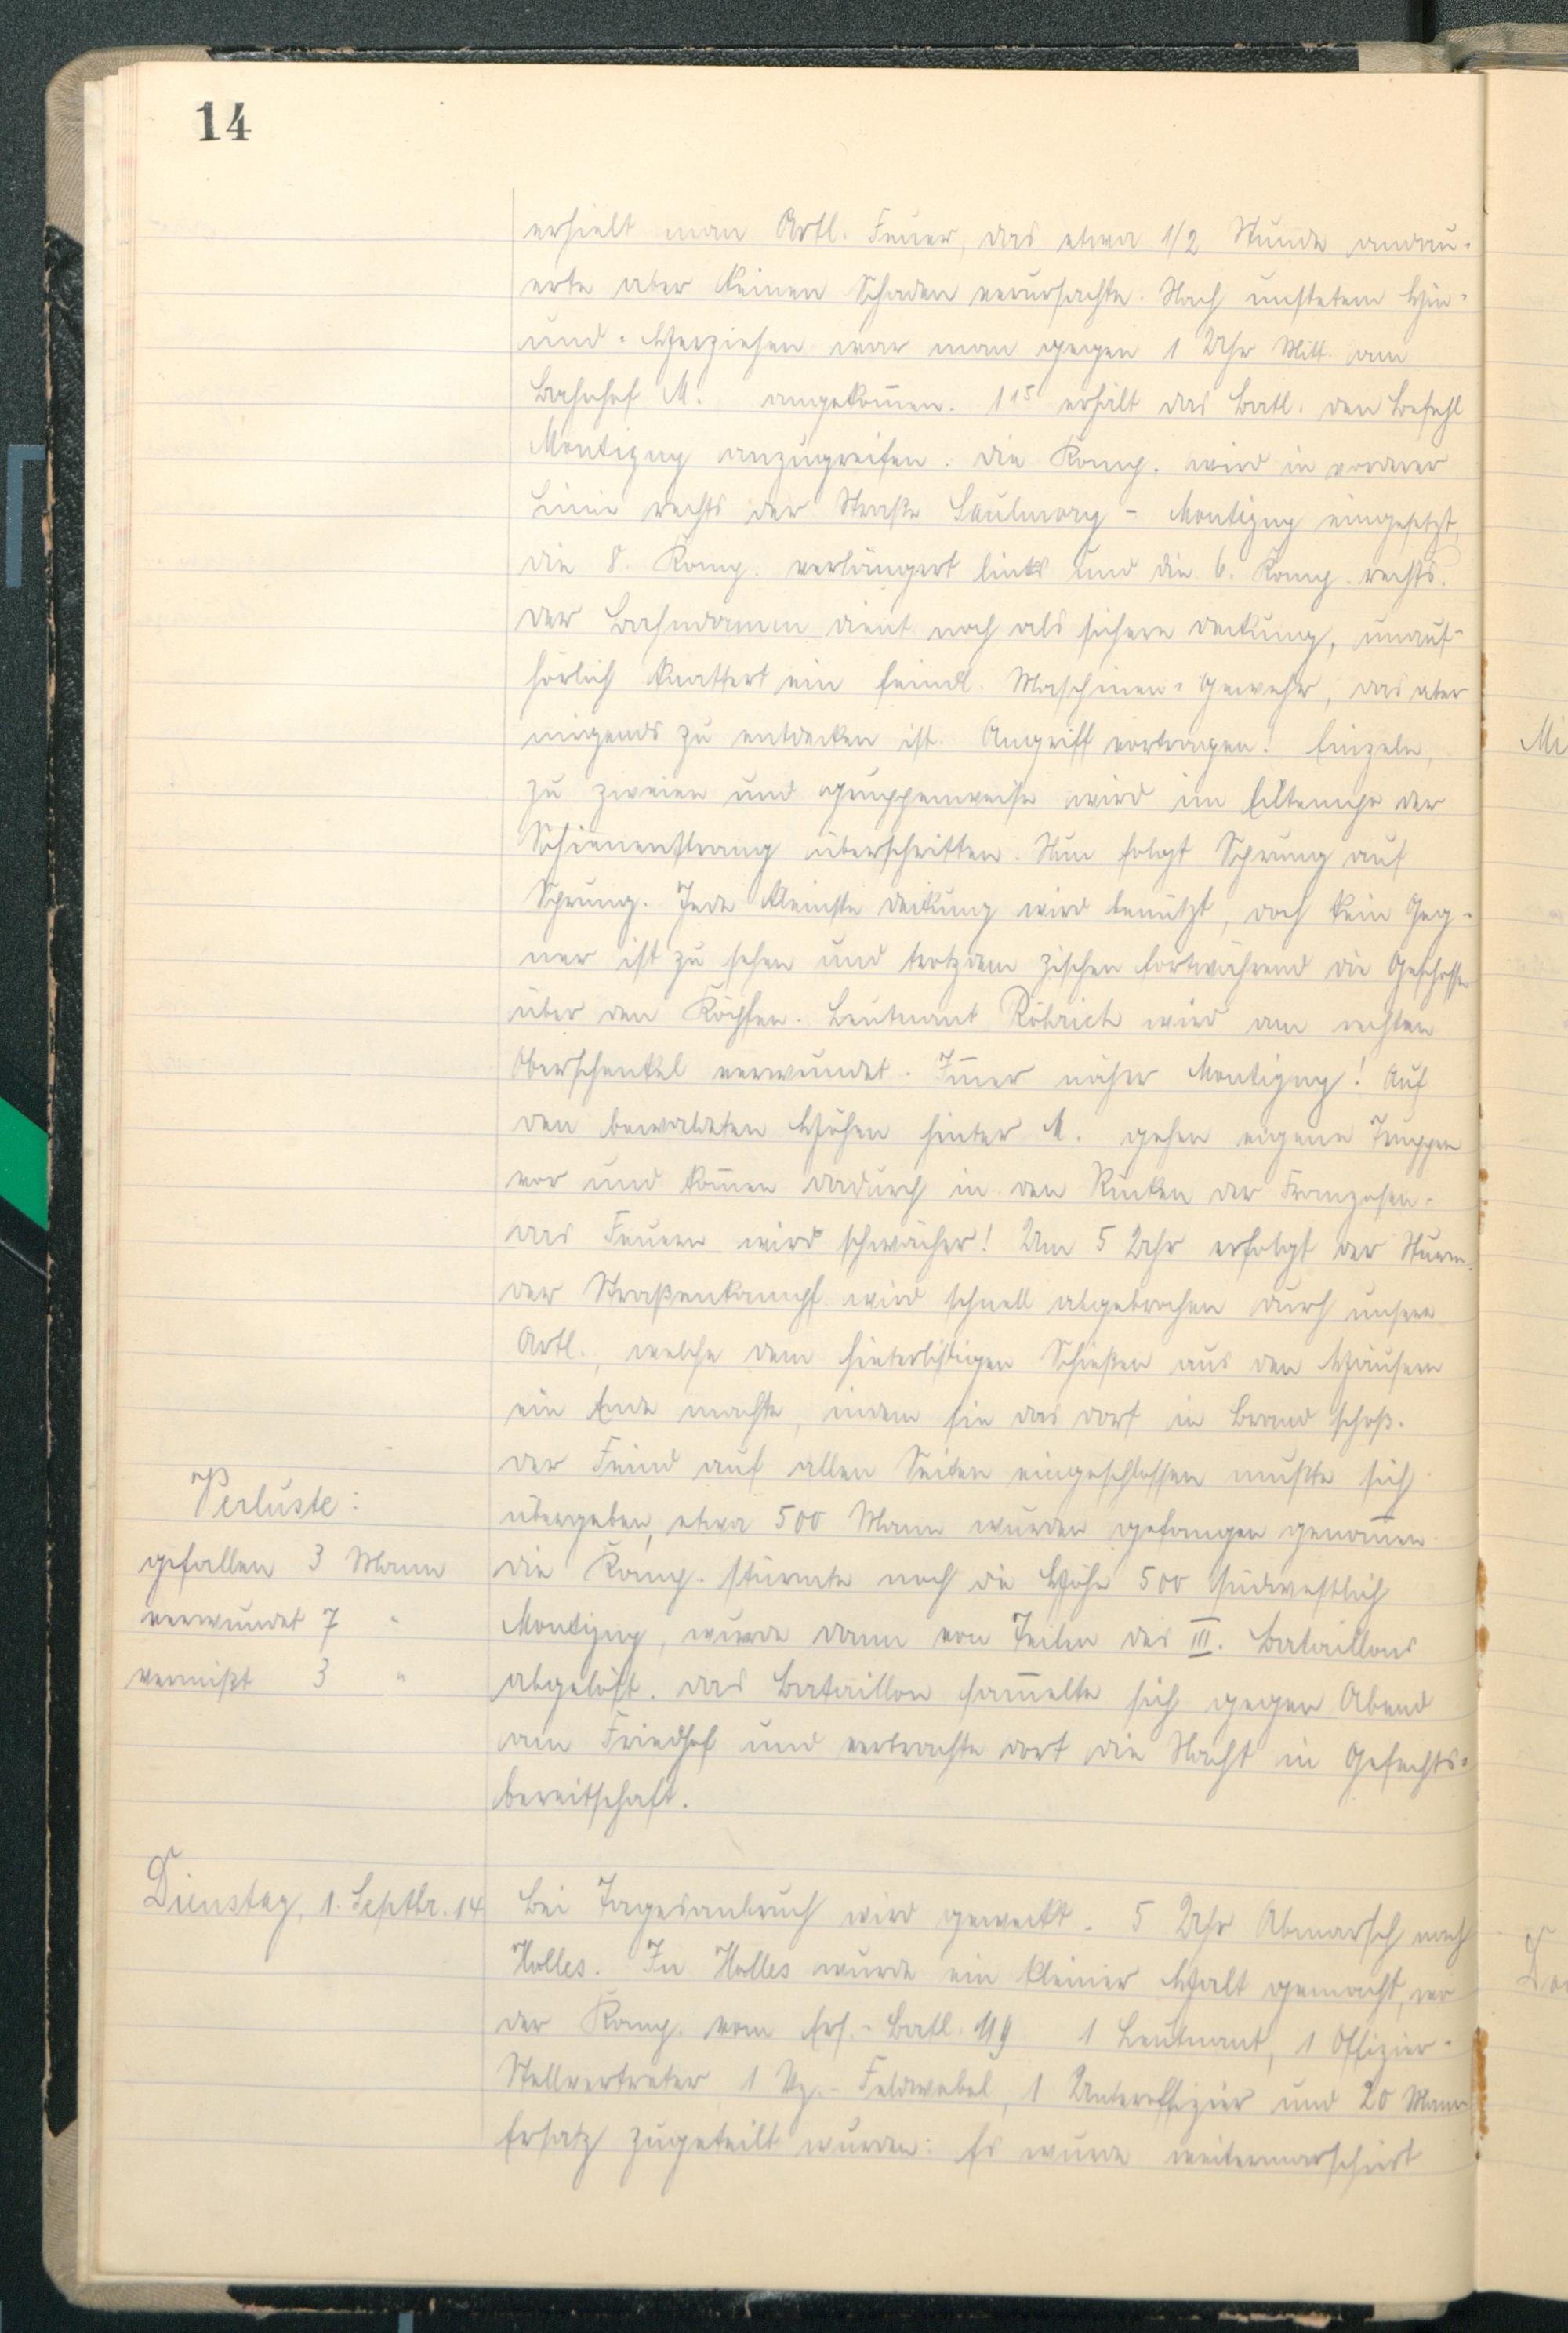 14
erhielt man Artl. Feuer, das etwa 1/2 Stunde andau-
erte aber keinen Schaden verursachte. Nach unstetem Hin-
und-Herziehen war man gegen 1 Uhr Mitt. am
Bahnhof M. angekom̄en. 1 15 erhält das Batl. den Befehl
Montigny anzugreifen. die Komp. wird in vorderer
Linie rechts der Straße Saulmory - Montigny eingesetzt,
die 8. Komp. verlängert links und die 6. Komp. rechts.
der Bahndamm dient noch als sichere deckung, unauf-
hörlich knattert ein feindl. Maschinen-Gewehr, das aber
nirgends zu entdecken ist. Angriff vortragen! Einzeln,
zu zweien und gruppenweise wird im Eiltempo der
Schienenstrang überschritten. Nun folgt Sprung auf
Sprung. Jede kleinste deckung wird benützt, doch kein Geg-
ner ist zu sehen und trotzdem zischen fortwährend die Geschosse
über den Köpfen. Leutnant Röhrich wird am rechten
Oberschenkel verwundet. Im̄er näher Montigny! Auf
den bewaldeten Höhen hinter M. gehen eigene Truppen
vor und kom̄en dadurch in den Rücken der Franzosen.
das Feuern wird schwächer! Um 5 Uhr erfolgt der Sturm.
der Straßenkampf wird schnell abgebrochen durch unsere
Artl., welche dem hinterlistigen Schießen aus den Häusern
ein Ende machte, indem sie das dorf in Brand schoß.
der Feind auf allen Seiten eingeschlossen mußte sich
übergeben, etwa 500 Mann wurden gefangen genom̄en.
die Komp. stürmte noch die Höhe 500 südwestlich
Montigny, wurde dann von Teilen des III. Bataillons
abgelöst. das Bataillon sam̄elte sich gegen Abend
am Friedhof und verbrachte dort die Nacht in Gefechts-
bereitschaft.
Verluste:
gefallen 3 Mann
verwundet 7 "
vermißt 3 "
Dienstag, 1. Septbr. 14
Bei Tagesanbruch wird geweckt. 5 Uhr Abmarsch nach
Halles. In Halles wurde ein kleiner Halt gemacht, wo
der Komp. vom Ers.-Batl. 119 1 Leutnant, 1 Offizier-
Stellvertreter 1 Vz.-Feldwebel, 1 Unteroffizier und 20 Mann
Ersatz zugeteilt wurden. Es wurde weitermarschiert
Mi